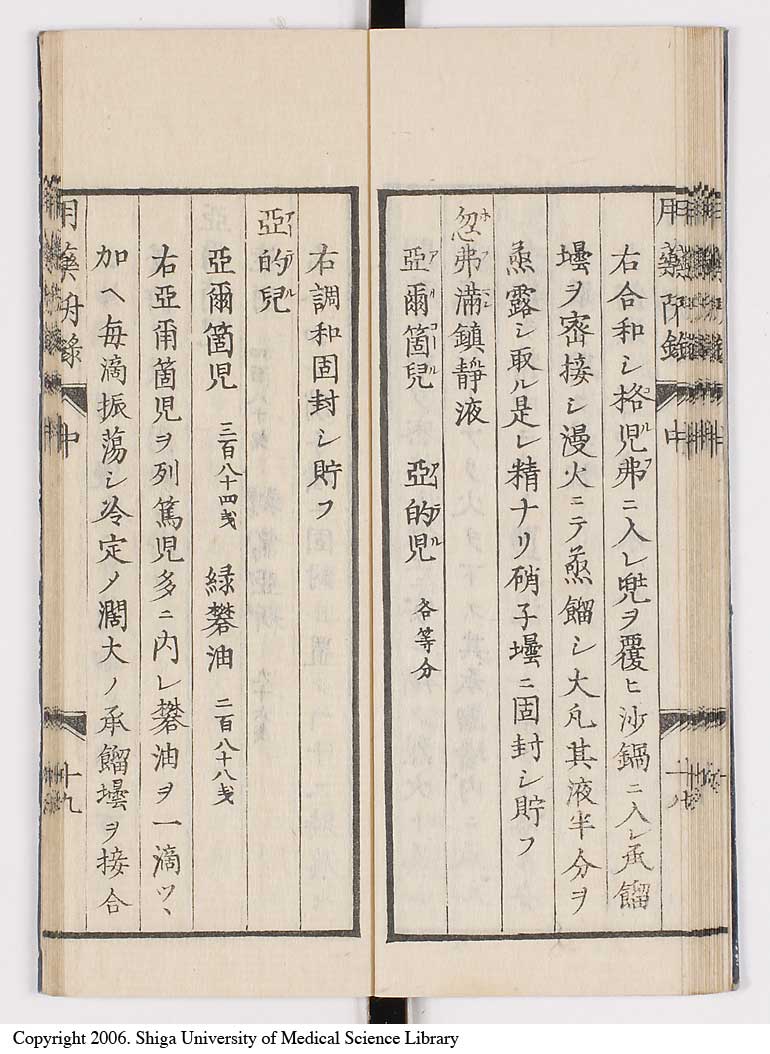 右合和シ格児弗ニ入レ兜ヲ覆ヒ沙鍋ニ入レ承餾
壜ヲ密接シ漫火ニテ蒸餾シ大凡其液半分ヲ
蒸露シ取ル是レ精ナリ硝子壜ニ固封シ貯フ
忽弗満鎮静液
亜爾箇兒 亜的児 各等分
右調和固封シ貯フ
亞的兒
亞爾箇児 三百八十四戔 緑礬油 二百八十八戔
右亞爾箇児ヲ列篤児多ニ内レ礬油ヲ一滴ツヽ
加ヘ毎滴振蕩シ冷定ノ濶大ノ承餾壜ヲ接合
中
十九
Copyright 2006. Shiga University of Medical Science Library